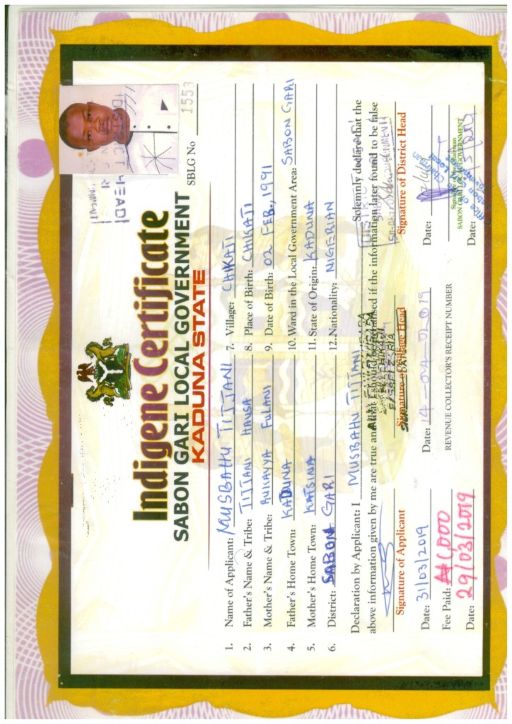 Indigene Certificate
SABON GARI LOCAL GOVERNMENT
KADUNA STATE
SBLG No 1553
1. Name of Applicant: MUSBAHU TIJJANI
2. Father's Name & Tribe: TIJJANI HAUSA
3. Mother's Name & Tribe: FULANI
4. Father's Home Town: KADUNA
5. Mother's Home Town: KATSINA
6. District: SABON GARI
7. Village: CHIKAJI
8. Place of Birth: CHIKAJI
9. Date of Birth: 02 FEB, 1991
10. Ward in the Local Government Area: SABON GARI
11. State of Origin: KADUNA
12. Nationality: NIGERIAN
Declaration by Applicant: I MUSBAHU TIJJANI Solemnly declare that the
above information given by me are true and that I should be if the information later found to be false
Signature of Applicant
Signature of Village Head
Signature of District Head
Date: 31/03/2019
Date: 14-04-2019
Date:
Fee Paid: ₦1,000
REVENUE COLLECTOR'S RECEIPT NUMBER
SABON GARI LOCAL GOVERNMENT
Date: 29/03/2019
Date: